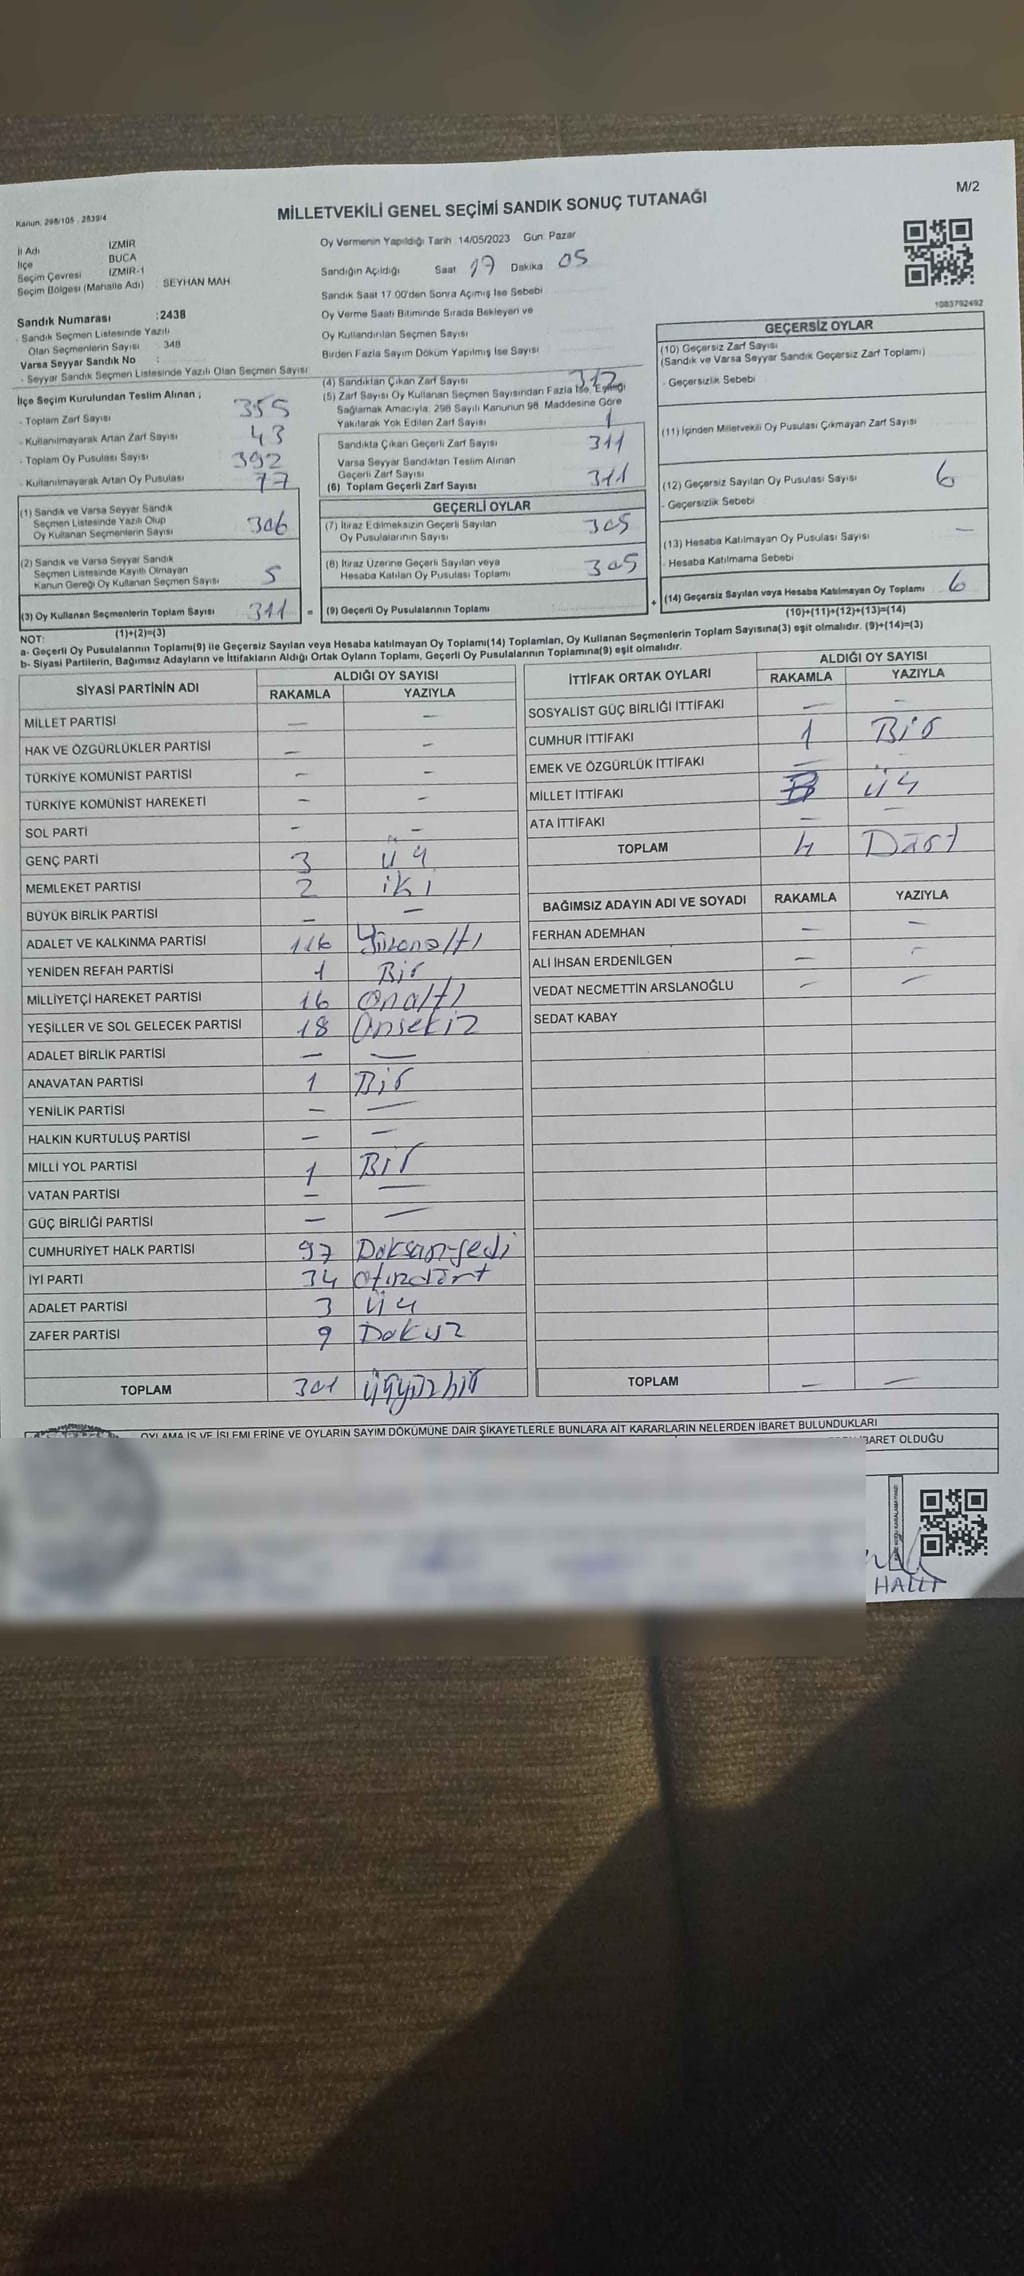 M/2
Kanun: 298/105 . 2839/4
MİLLETVEKİLİ GENEL SEÇİMİ SANDIK SONUÇ TUTANAĞI
İl Adı İZMİR
İlçe BUCA
Seçim Çevresi İZMİR-1
Seçim Bölgesi (Mahalle Adı) : SEYHAN MAH
Sandık Numarası :2438
- Sandık Seçmen Listesinde Yazılı
Olan Seçmenlerin Sayısı : 348
Varsa Seyyar Sandık No :
- Seyyar Sandık Seçmen Listesinde Yazılı Olan Seçmen Sayısı
Oy Vermenin Yapıldığı Tarih :14/05/2023 Gün: Pazar
Sandığın Açıldığı Saat 17 Dakika 05
Sandık Saat 17.00'den Sonra Açılmış İse Sebebi
Oy Verme Saati Bitiminde Sırada Bekleyen ve
Oy Kullandırılan Seçmen Sayısı
Birden Fazla Sayım Döküm Yapılmış İse Sayısı
1083792492
İlçe Seçim Kurulundan Teslim Alınan ;
- Toplam Zarf Sayısı 355
- Kullanılmayarak Artan Zarf Sayısı 43
- Toplam Oy Pusulası Sayısı 392
- Kullanılmayarak Artan Oy Pusulası 77
(1) Sandık ve Varsa Seyyar Sandık
Seçmen Listesinde Yazılı Olup
Oy Kullanan Seçmenlerin Sayısı 306
(2) Sandık ve Varsa Seyyar Sandık
Seçmen Listesinde Kayıtlı Olmayan
Kanun Gereği Oy Kullanan Seçmen Sayısı 5
(3) Oy Kullanan Seçmenlerin Toplam Sayısı 311 =
(1)+(2)=(3)
(4) Sandıktan Çıkan Zarf Sayısı 312
(5) Zarf Sayısı Oy Kullanan Seçmen Sayısından Fazla İse, Eşitliği
Sağlamak Amacıyla, 298 Sayılı Kanunun 98. Maddesine Göre
Yakılarak Yok Edilen Zarf Sayısı 1
Sandıkta Çıkan Geçerli Zarf Sayısı 311
Varsa Seyyar Sandıktan Teslim Alınan
Geçerli Zarf Sayısı
(6) Toplam Geçerli Zarf Sayısı 311
GEÇERLİ OYLAR
(7) İtiraz Edilmeksizin Geçerli Sayılan
Oy Pusulalarının Sayısı 305
(8) İtiraz Üzerine Geçerli Sayılan veya
Hesaba Katılan Oy Pusulası Toplamı 305
(9) Geçerli Oy Pusulalarının Toplamı +
GEÇERSİZ OYLAR
(10) Geçersiz Zarf Sayısı
(Sandık ve Varsa Seyyar Sandık Geçersiz Zarf Toplamı)
- Geçersizlik Sebebi
(11) İçinden Milletvekili Oy Pusulası Çıkmayan Zarf Sayısı
(12) Geçersiz Sayılan Oy Pusulası Sayısı 6
- Geçersizlik Sebebi
(13) Hesaba Katılmayan Oy Pusulası Sayısı —
- Hesaba Katılmama Sebebi
(14) Geçersiz Sayılan veya Hesaba Katılmayan Oy Toplamı 6
(10)+(11)+(12)+(13)=(14)
NOT:
a- Geçerli Oy Pusulalarının Toplamı(9) ile Geçersiz Sayılan veya Hesaba katılmayan Oy Toplamı(14) Toplamları, Oy Kullanan Seçmenlerin Toplam Sayısına(3) eşit olmalıdır. (9)+(14)=(3)
b- Siyasi Partilerin, Bağımsız Adayların ve İttifakların Aldığı Ortak Oyların Toplamı, Geçerli Oy Pusulalarının Toplamına(9) eşit olmalıdır.
SİYASİ PARTİNİN ADI ALDIĞI OY SAYISI
RAKAMLA YAZIYLA
MİLLET PARTİSİ — —
HAK VE ÖZGÜRLÜKLER PARTİSİ — —
TÜRKİYE KOMÜNİST PARTİSİ — —
TÜRKİYE KOMÜNİST HAREKETİ — —
SOL PARTİ — —
GENÇ PARTİ 3 üç
MEMLEKET PARTİSİ 2 iki
BÜYÜK BİRLİK PARTİSİ — —
ADALET VE KALKINMA PARTİSİ 116 Yüzonaltı
YENİDEN REFAH PARTİSİ 1 Bir
MİLLİYETÇİ HAREKET PARTİSİ 16 Onaltı
YEŞİLLER VE SOL GELECEK PARTİSİ 18 Onsekiz
ADALET BİRLİK PARTİSİ — —
ANAVATAN PARTİSİ 1 Bir
YENİLİK PARTİSİ — —
HALKIN KURTULUŞ PARTİSİ — —
MİLLİ YOL PARTİSİ 1 Bir
VATAN PARTİSİ — —
GÜÇ BİRLİĞİ PARTİSİ — —
CUMHURİYET HALK PARTİSİ 97 Doksan-yedi
İYİ PARTİ 34 otuzdört
ADALET PARTİSİ 3 üç
ZAFER PARTİSİ 9 Dokuz
TOPLAM 301 üçyüzbir
İTTİFAK ORTAK OYLARI ALDIĞI OY SAYISI
RAKAMLA YAZIYLA
SOSYALİST GÜÇ BİRLİĞİ İTTİFAKI — —
CUMHUR İTTİFAKI 1 Bir
EMEK VE ÖZGÜRLÜK İTTİFAKI — —
MİLLET İTTİFAKI 3 üç
ATA İTTİFAKI — —
TOPLAM 4 Dört
BAĞIMSIZ ADAYIN ADI VE SOYADI RAKAMLA YAZIYLA
FERHAN ADEMHAN — —
ALİ İHSAN ERDENİLGEN — —
VEDAT NECMETTİN ARSLANOĞLU — —
SEDAT KABAY
TOPLAM — —
OYLAMA İŞ VE İŞLEMLERİNE VE OYLARIN SAYIM DÖKÜMÜNE DAİR ŞİKAYETLERLE BUNLARA AİT KARARLARIN NELERDEN İBARET BULUNDUKLARI
İBARET OLDUĞU